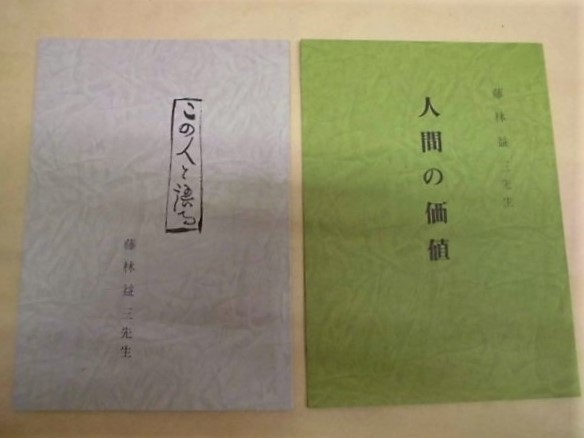 この人と語る
藤林益三先生
藤林益三先生
人間の価値